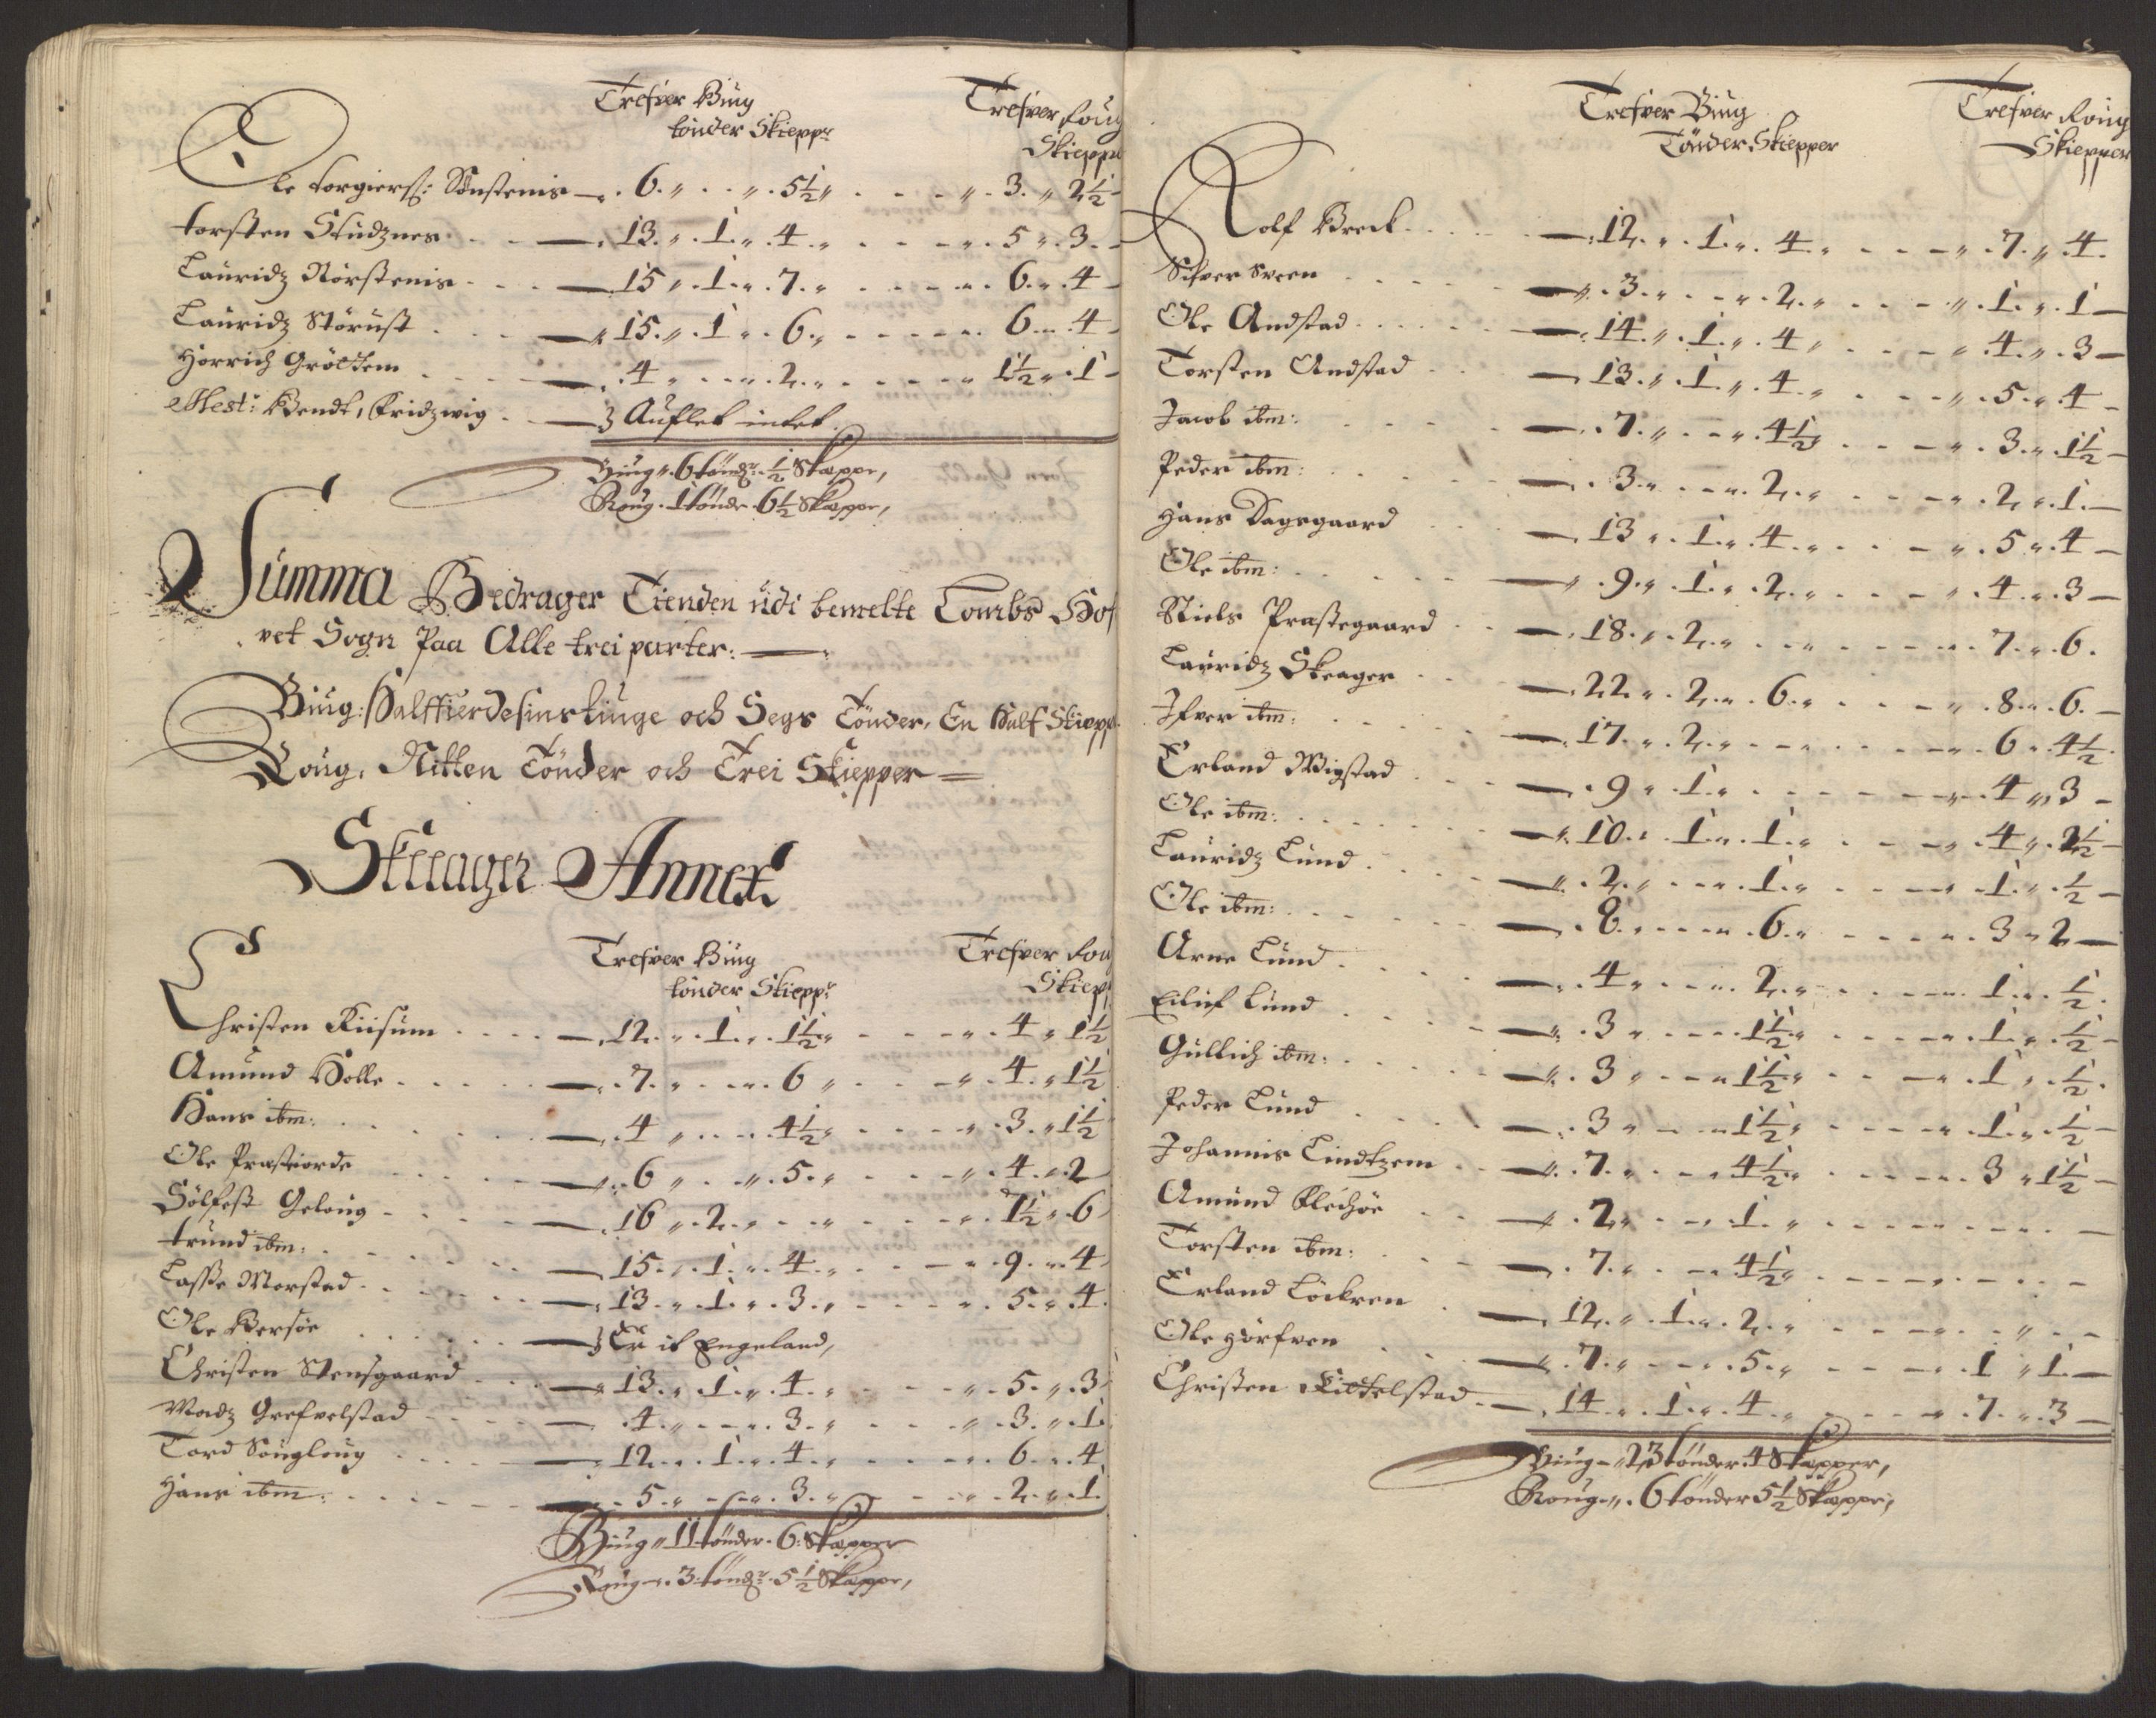 Trefver Biug Trefver Roug
tönder Skiepp: Skiepp
Ole torgierß: Sönstenis — . 6. „ . . „ . 5½ „ . - - „ . 3. „ 2½ -
torsten Studznes. . - — . 13. „ . 1. „ . 4. „ . - - - „ . 5 „ . 3. -
Lauridz Nörstenis - . . — 15 „ . 1. „ . 7. „ . - - - „ . 6. „ . 4 -
Lauridz Störust . . . — „ 15. „ . 1 „ . 6. „ - - - - „ . 6. „ . 4 -
Horrich Gröttem . . . — . . 4 „ . . „ . 2. „ . - - - - „ 1½ „ . 1 -
Mest: Bendt, Fridzwig . — } Auflet intet.
Biug „ . 6 töndr: ½ Skepper,
Roug . 1 tönde . 6½ Skepper,
Summa Bedrager Tienden udi bemelte Lombs Hof
vet Sogn Paa Alle trei parter: —
Biug: Halffierdesinstiuge och Segs Tönder, En Half Skiepp.
Roug, Nitten Tönder och Trei Skiepper =
Skeager Annex
Trefver Biug Trefver Rou
tönder Skiepp: Skiep
Christen Riisum . . . . — . 12. „ . 1. „ . 1½ „ - - - „ . 4 „ 1½
Amund Holle . . . . . — . . 7. „ . . „ . 6 „ . - - „ . 4. „ 1½
Hans ibm: . . . . . — . . 4 „ . . . . 4½ „ . - - - „ . 3. „ 1½
Ole Prastiorde . . . . — „ . 6 „ . . „ . 5. „ . - - „ . 4. „ . 2
Sölfest Geloug - . . . — . 16 „ . 2. „ . - „ . - - - „ . 7½ „ . 6
trund ibm: . . . . . . — 15. „ . 1. „ . 4. „ . - - - „ . 9. „ . 4
Lasse Morstad . . . . . — . 13. „ . 1. „ . 3. „ . . - „ . 5. „ . 4.
Ole Bersöe . . . . . — } Er it Engeland,
Christen Stensgaard . — „ 13. „ . 1. „ . 4. „ . . - „ . 5. „ . 3
Madz Grefvelstad . . . — . 4. „ . - „ . 3. „ . . - „ . 3. „ . 1.
Tord Sougloug . . . . — . 12. „ . 1. „ . 4. „ . . - „ . 6. „ . 4
Hans ibm: . . . . . — . 5. „ . - „ . 3. „ . - - „ . 2. „ . 1.
Biug „ 11 tönder . 6: Skepper
Roug „ . 3: töndr: . 5½ Skepper,
Trefver Biug Trefver Roug
Tönder Skiepper Skiepper
Rolf Breck . . . . — : 12. „ . 1. „ . 4. „ . - - - „ . 7. „ . 4.
Sifver Sveen . . . . — „ . 3. „ . - „ . 2. „ . - - „ . 1. „ . 1 —
Ole Andstad . . . . . — . 14. „ . 1. „ . 4 „ . - - „ . 4. „ . 3 —
Torsten Andstad . . . — 13. „ . 1. „ . 4. „ . - - „ . 5. „ . 4 -
Jacob ibm: . . . . — . . 7. „ . - „ . 4½ „ . . - „ . 3. „ . 1½ —
Peder ibm: . . . . — . 3. „ . . „ . 2. „ . . - „ . 2. „ . 1. —
Hans Dagsgaard . . — . 13 „ . 1. „ . 4. „ . . - „ . 5 „ . 4 —
Ole ibm: . . . . . — „ . 9. „ . 1. „ . 2. „ . - - „ . 4. „ . 3 —
Niels Prastegaard . . — . 18. „ . 2. „ . . - „ . - - - „ . 7. „ . 6.
Lauridz Skeager . . . — . 22. „ . 2. „ . 6. „ . . - „ . 8. „ . 6. —
Ifver ibm: . . . . . — . 17. „ . 2. „ . - - „ . - - - „ . 6 „ . 4½.
Erland Wigstad . . . — . . 9 „ . 1. „ . . - - - - „ . 4 „ . 3 -
Ole ibm: . . . . . . — „ . 10. „ . 1. „ . 1. „ . . - „ . 4 „ . 2½ —
Lauridz Lund . . . . — „ . 2. „ . - „ . 1. „ . - - „ . 1. „ . ½ —
Ole ibm: . . . . . — . 8. „ . - „ . 6. „ . - - - „ . 3 „ 2 —
Arne Lund . . . . . — . . 4 „ . - „ . 2. „ . - - - „ . 1. „ . ½.
Eiluf Lund . . . . . — „ . 3 „ . - - 1½ „ . . - - - „ . 1. „ . ½ -
Gullich ibm: . . . . — „ . 3 „ . - „ 1½ „ . . - „ . 1 „ . ½.
Peder Lund . . . . . — . . 3 „ . - „ 1½ „ . - - - „ . 1. „ . ½ —
Johannis Lindtzem . . — „ . 7. „ . - „ 4½ „ . . - - „ . 3 „ 1½ —
Amund Flechöe . . . — „ . 2 „ . - „ . 1. „ . - - - - - - —
Torsten ibm: . . . . — . 7. „ . - „ 4½ „ . - - - „ . - - -
Erland Löckren . . — . 12. „ . 1. „ . 2. „ . - - - - . „ . - -
Ole Hörfven . . . . — „ . 7. „ . - „ . 5. „ . - - „ . 1 „ 1. —
Christen Kittelstad . — . 14. „ . 1. „ . 4. „ . - - „ . 7. „ . 3 —
Biug - „ 23 tönder . 4 Skepper,
Roug - „ . 6 tönder 5½ Skepper,